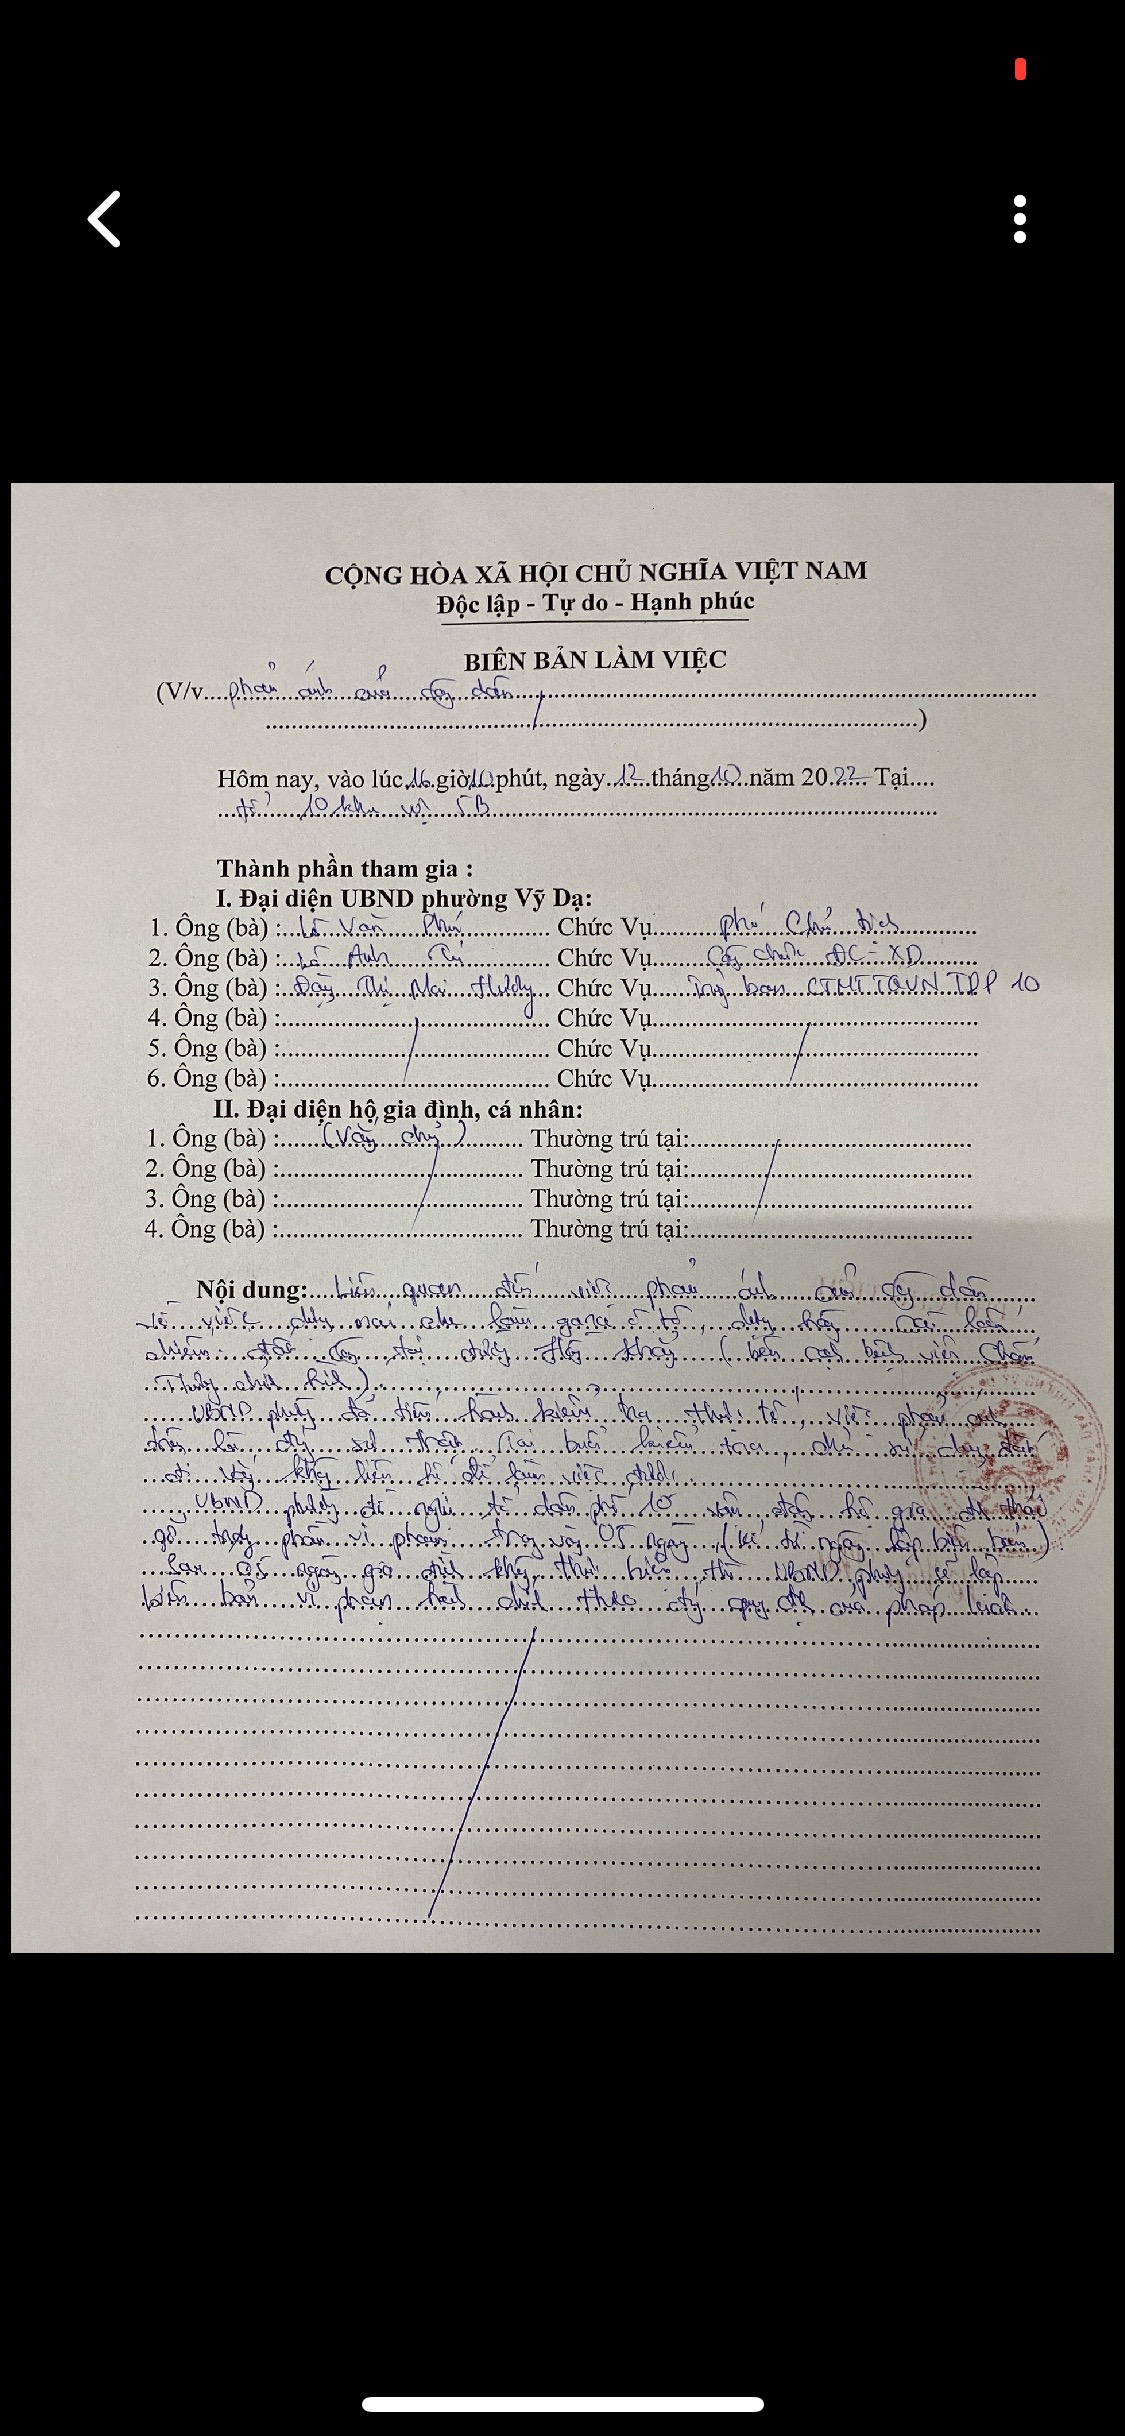 CỘNG HÒA XÃ HỘI CHỦ NGHĨA VIỆT NAM
Độc lập - Tự do - Hạnh phúc
BIÊN BẢN LÀM VIỆC
(V/v phản ánh của dân
)
Hôm nay, vào lúc 16 giờ 10 phút, ngày 12 tháng 10 năm 2022 Tại
tổ 10 khu vực 5B
Thành phần tham gia :
I. Đại diện UBND phường Vỹ Dạ:
1. Ông (bà) : Lê Văn Phú Chức Vụ phó Chủ tịch
2. Ông (bà) : Lê Anh Chức Vụ Công chức ĐC - XD
3. Ông (bà) : Đặng Thị Mai Hương Chức Vụ Trưởng ban CTMTTQVN TDP 10
4. Ông (bà) : Chức Vụ
5. Ông (bà) : Chức Vụ
6. Ông (bà) : Chức Vụ
II. Đại diện hộ gia đình, cá nhân:
1. Ông (bà) : (Vắng chủ) Thường trú tại:
2. Ông (bà) : Thường trú tại:
3. Ông (bà) : Thường trú tại:
4. Ông (bà) : Thường trú tại:
Nội dung: Liên quan đến việc phản ánh của dân
về việc dựng mái che làm gara ô tô, dựng hàng rào lấn
chiếm đất tại đường (bên cạnh bệnh viện Chấn
Thương chỉnh hình)
UBND phường đã tiến hành kiểm tra thực tế, việc phản ánh
trên là đúng sự thật. Tại buổi kiểm tra, chủ sử dụng đất
đi vắng không liên hệ để làm việc được.
UBND phường đề nghị tổ dân phố 10 vận động hộ gia đình tháo
gỡ phần vi phạm trong vòng 05 ngày (kể từ ngày lập biên bản)
Sau 05 ngày gia đình không thực hiện thì UBND phường sẽ lập
biên bản vi phạm hành chính theo đúng quy định của pháp luật